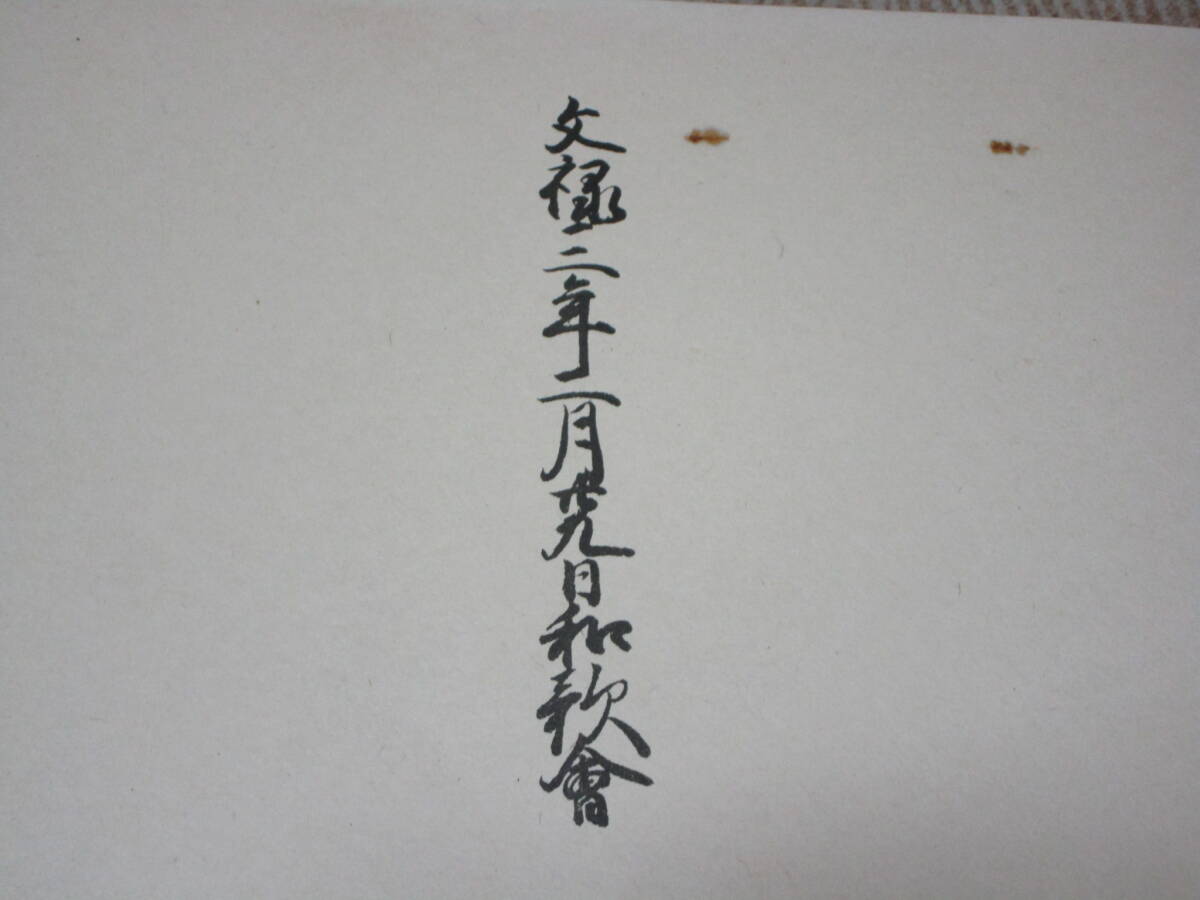 文禄三年二月廿九日和歌會